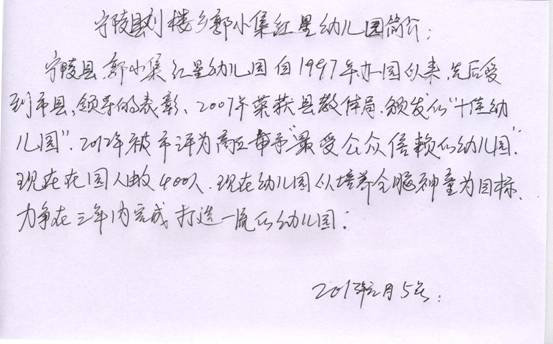 宁陵县刘楼乡郭小集红星幼儿园简介:
宁陵县郭小集红星幼儿园自1997年办园以来,先后受
到市县领导的表彰、2007年荣获县教体局,颁发的"十佳幼
儿园".2012年被市评为商丘最受公众信赖的幼儿园".
现在在园人数400人.现在幼儿园以培养全脑神童为目标.
力争在三年内完成打造一流的幼儿园.
2013年 月5号.